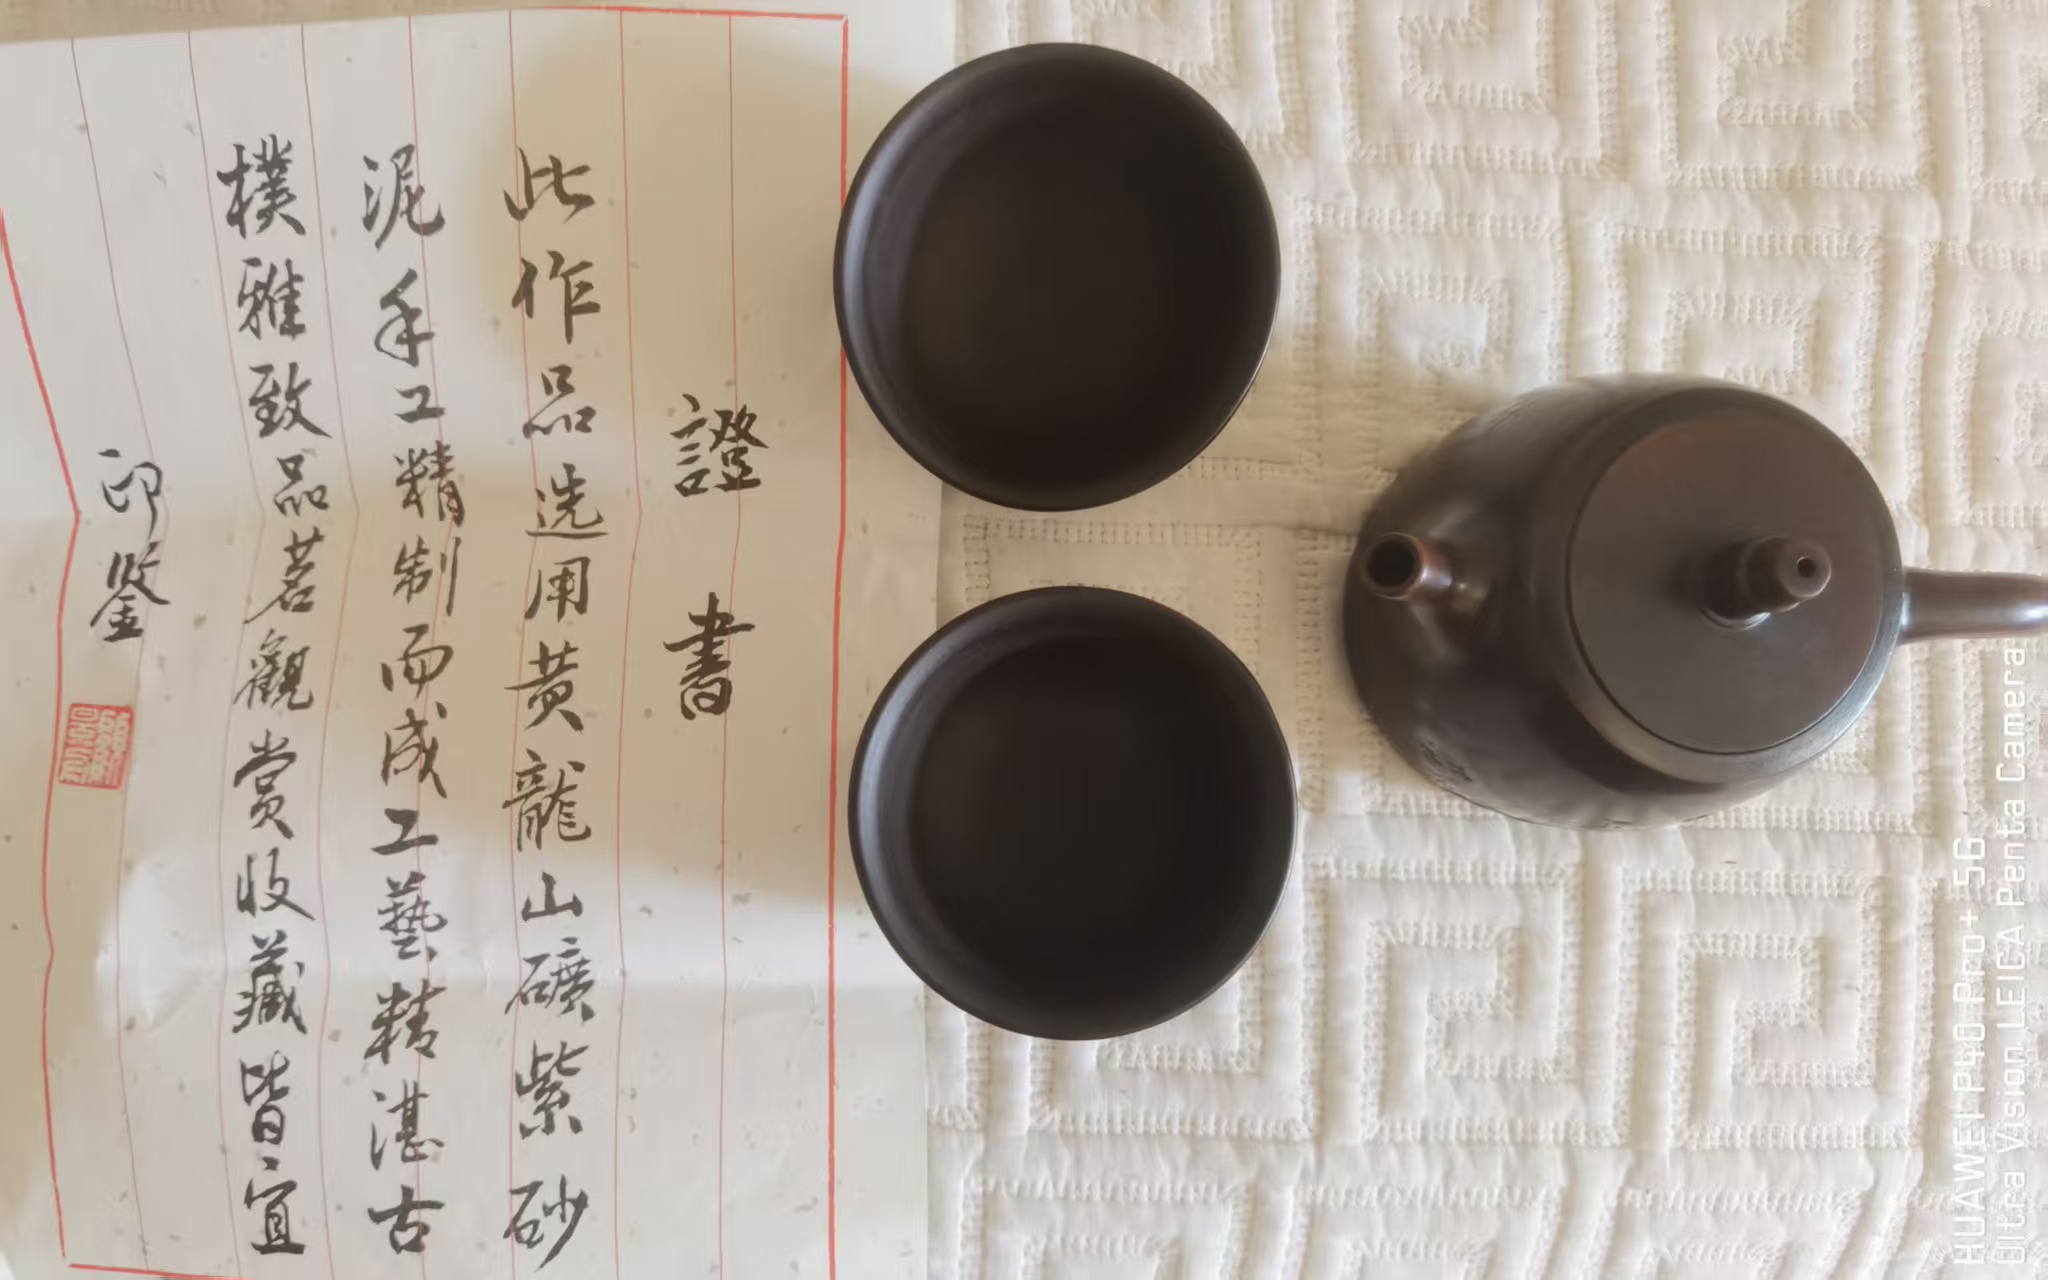 證書
此作品选用黄龍山礦紫砂
泥手工精制而成工藝精湛古
樸雅致品茗觀赏收藏皆宜
印鉴
HUAWEI P40 Pro+ 5G
Ultra Vision LEICA Penta Camera